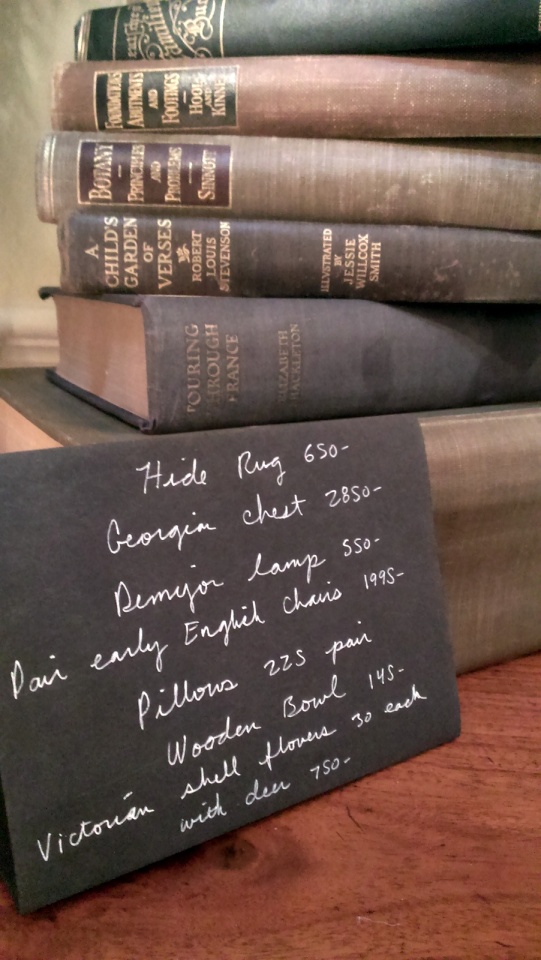 Familiar
FOUNDATIONS
ABUTMENTS
AND
FOOTINGS
HOOL
AND
KINNE
BOTANY
PRINCIPLES
AND
PROBLEMS
SINNOTT
A
CHILD'S
GARDEN
OF
VERSES
ROBERT
LOUIS
STEVENSON
ILLUSTRATED
BY
JESSIE
WILLCOX
SMITH
TOURING
THROUGH
FRANCE
ELIZABETH
SHACKLETON
Hide Rug 650-
Georgian chest 2850-
Demijor lamp 550-
Pair early English chairs 1995-
Pillows 225 pair
Wooden Bowl 145-
Victorian shell flovers 30 each
with deer 750-